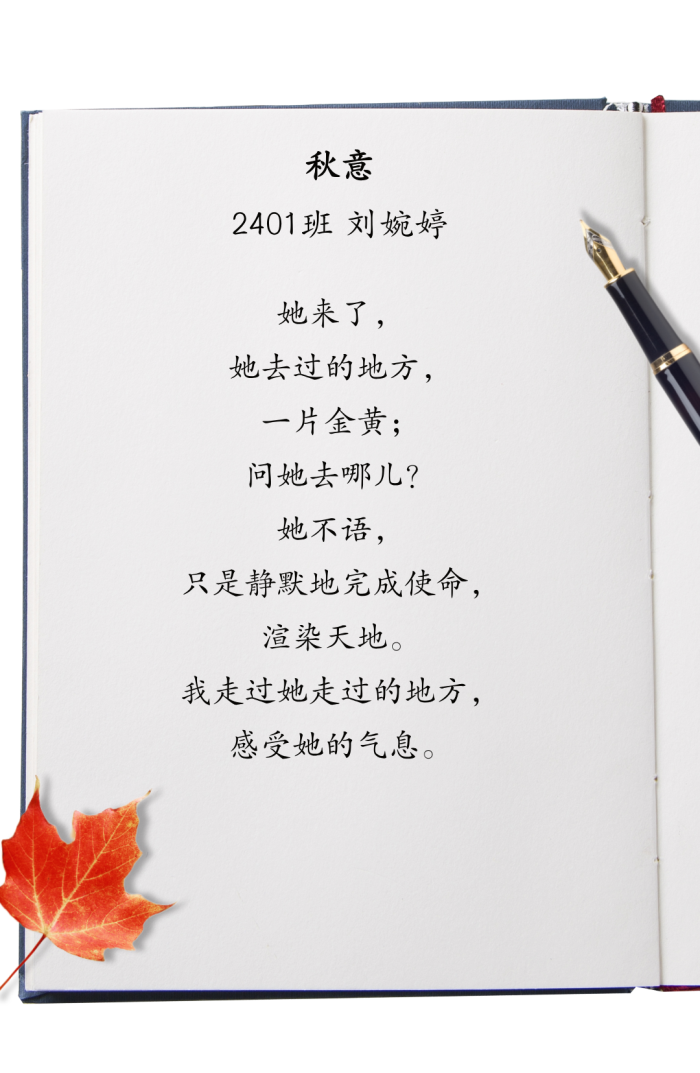 秋意
2401班 刘婉婷
她来了，
她去过的地方，
一片金黄；
问她去哪儿？
她不语，
只是静默地完成使命，
渲染天地。
我走过她走过的地方，
感受她的气息。